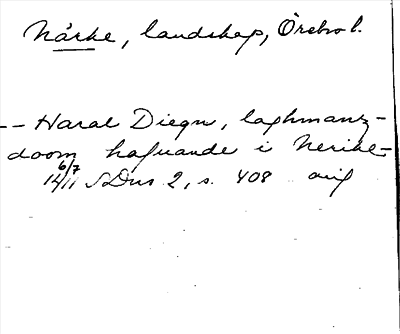 Närke, landskap, Örebro l.
-- Haral Diegn, laghmanz-
doom hafuande i Nerike -
14 6/7 11 SDns 2, s. 408 orig